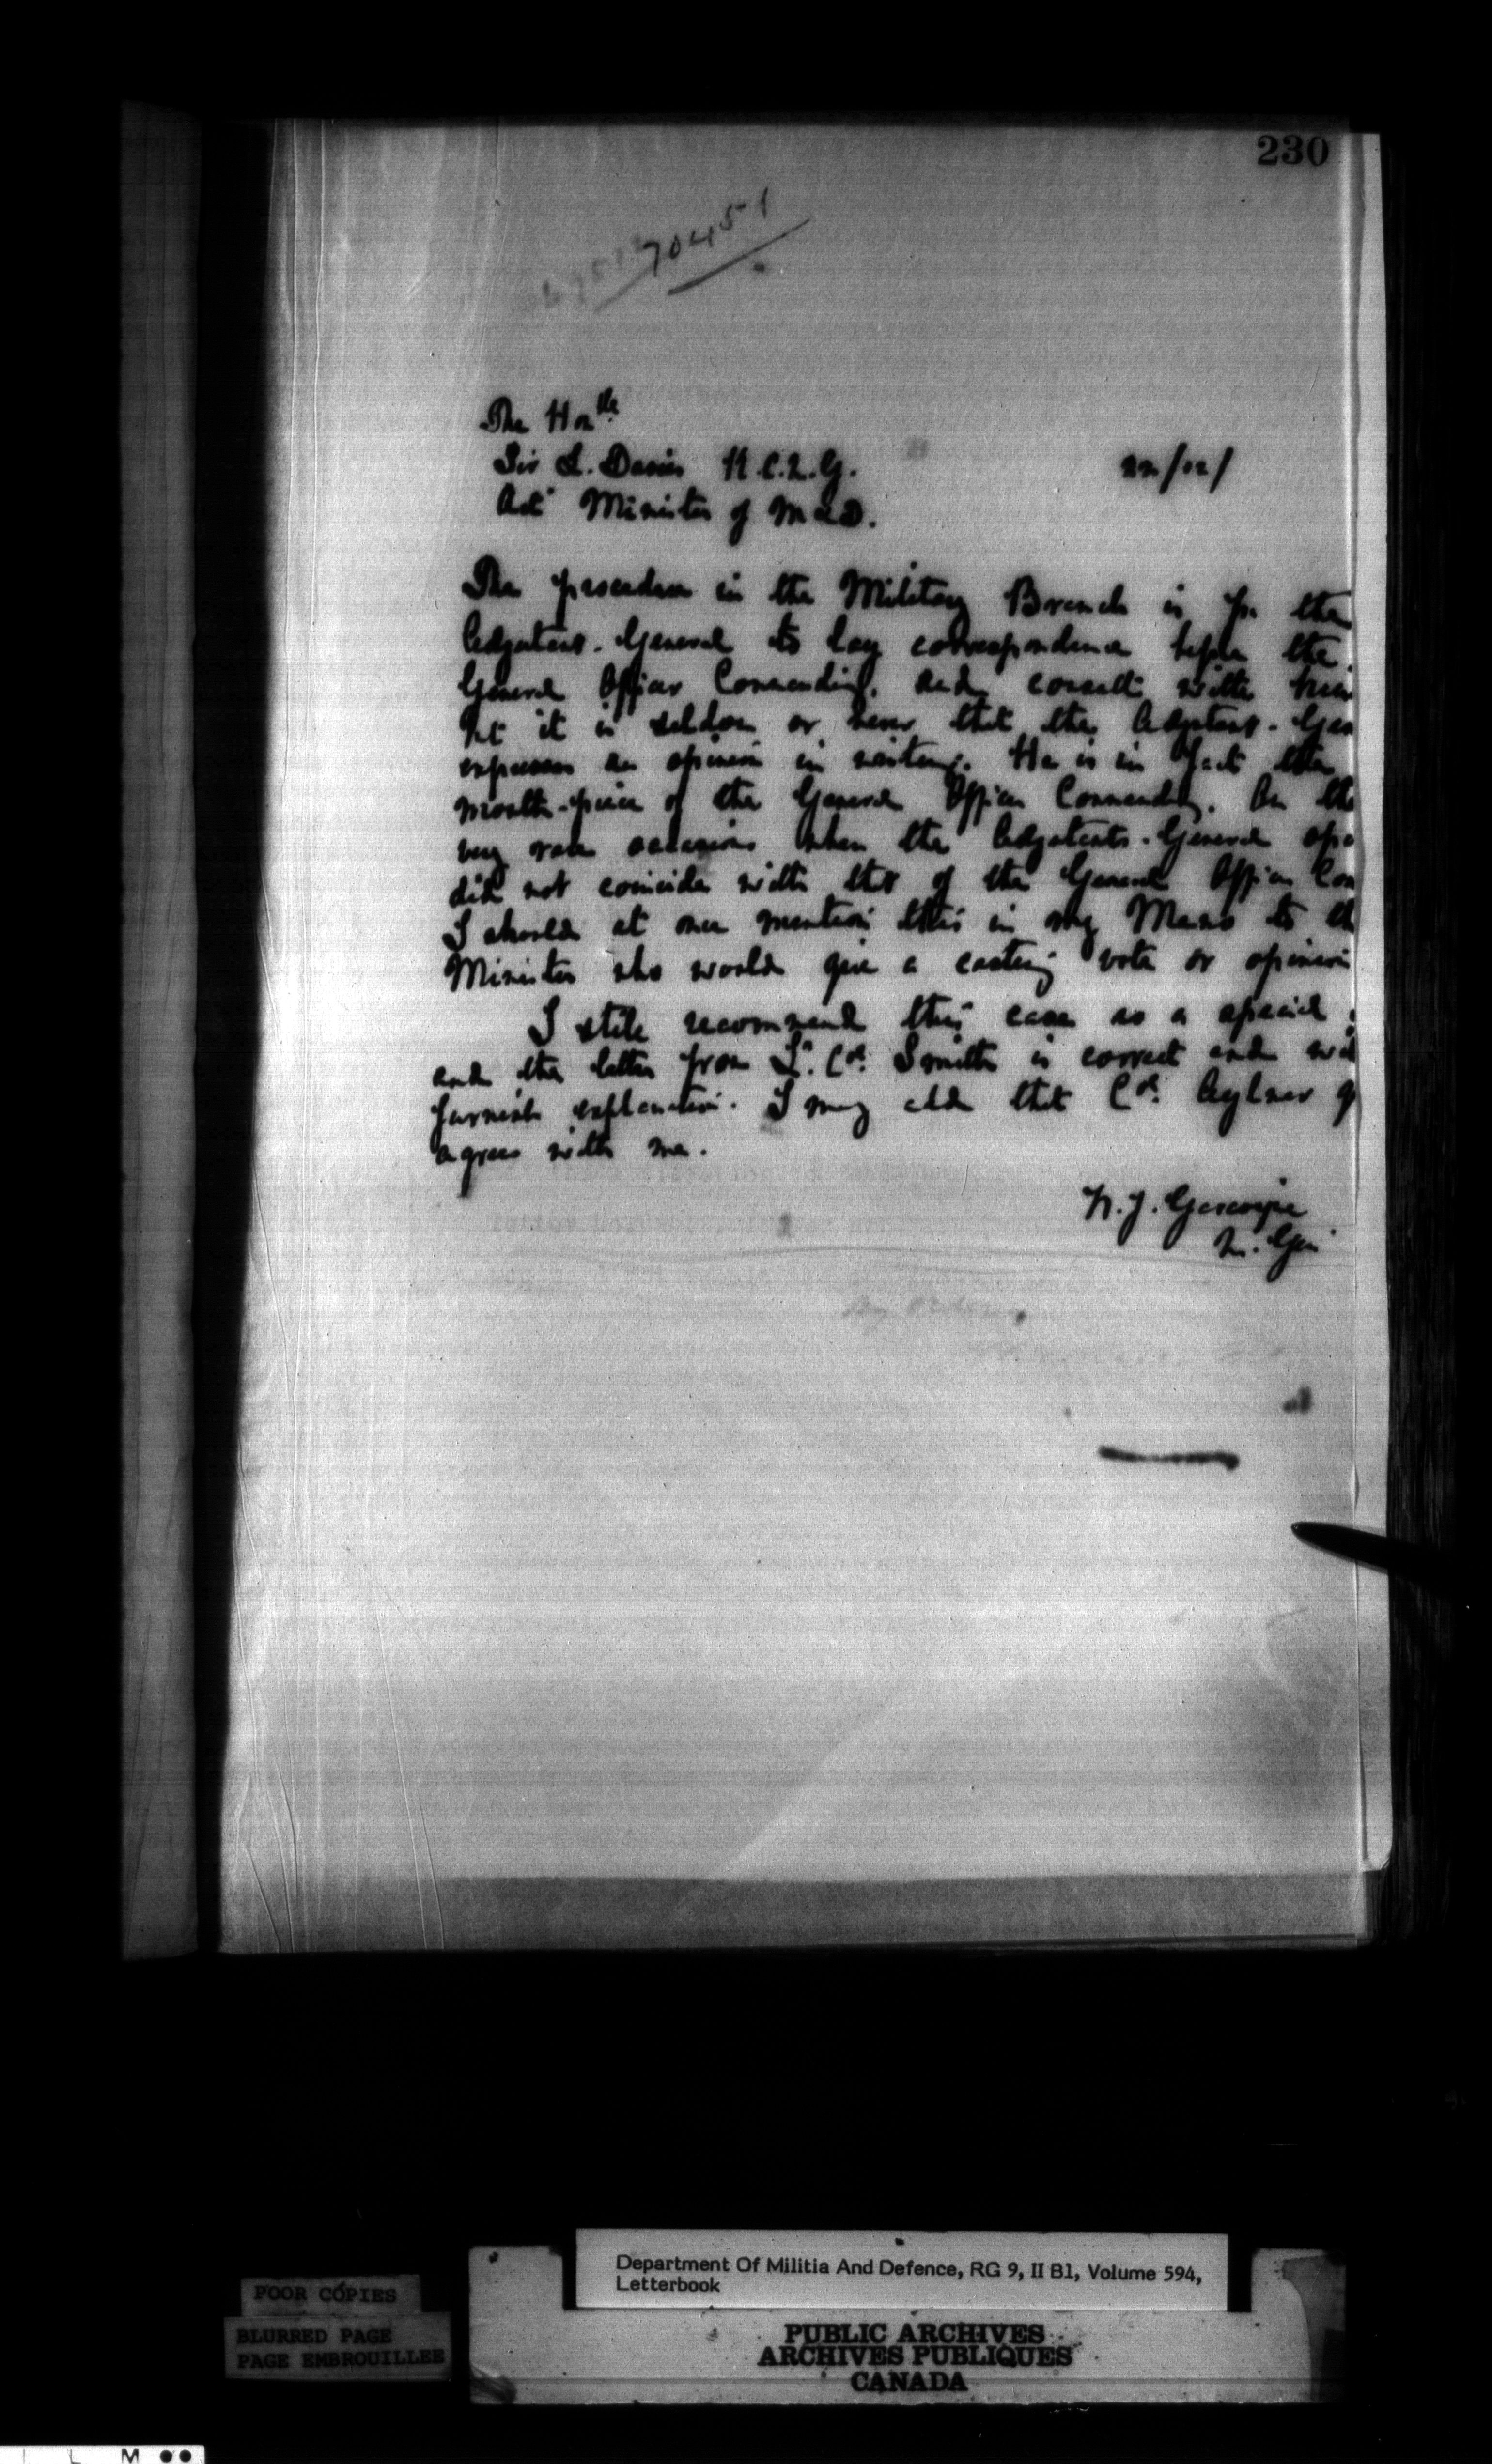 230
70451
The Honble
Sir L. Davies K.C.M.G.
Act Minister of M & D.
The procedure in the Military Branch is for the
Adjutant-General to lay correspondence before the
General Officer Commanding, and consult with him
but it is seldom or never that the Adjutant-Gen
expresses an opinion in writing. He is in fact the
mouth-piece of the General Officer Commanding. On the
very rare occasions when the Adjutant-General opi
did not coincide with that of the General Officer Com
I should at once mention this in my Memo to th
Minister who would give a casting vote or opinion
I still recommend this case as a special
and the letter from Lt. Col. Smith is correct and
furnish explanation. I may add that Col. Aylmer
agrees with me.
W. J. Gascoigne
M. Gen
By Order,
Department Of Militia And Defence, RG 9, II B1, Volume 594,
Letterbook
POOR COPIES
BLURRED PAGE
PAGE EMBROUILLEE
PUBLIC ARCHIVES
ARCHIVES PUBLIQUES
CANADA
L M